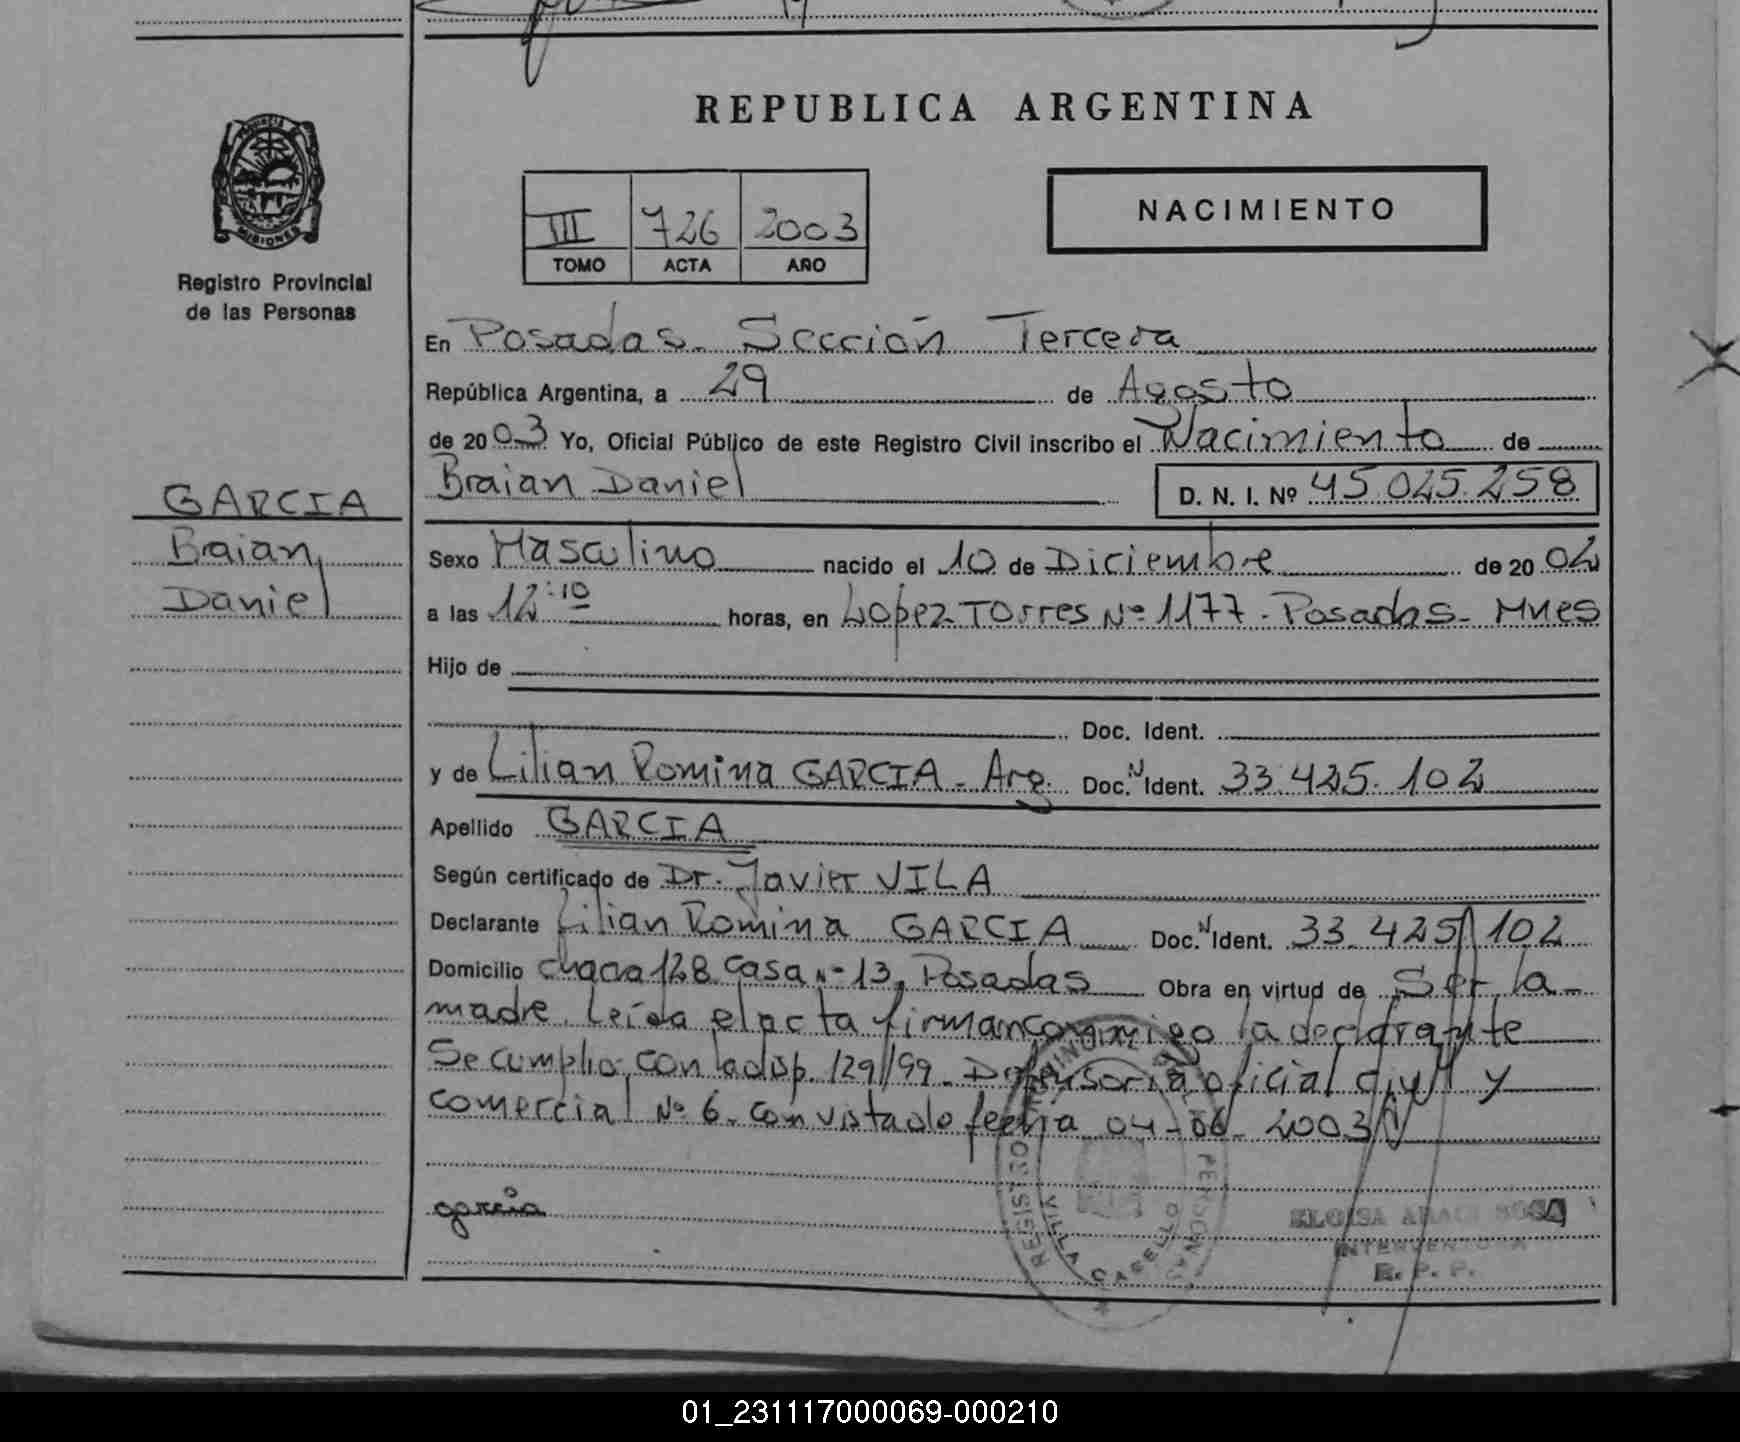 REPUBLICA ARGENTINA
PROVINCIA DE
MISIONES
Registro Provincial
de las Personas
III 726 2003
TOMO ACTA AÑO
NACIMIENTO
En Posadas. Sección Tercera
República Argentina, a 29 de Agosto
de 2003 Yo, Oficial Público de este Registro Civil inscribo el Nacimiento de
Braian Daniel D. N. I. Nº 45.025.258
GARCIA
Braian
Daniel
Sexo Masculino nacido el 10 de Diciembre de 2002
a las 12:10 horas, en Lopez Torres Nº 1177. Posadas. Mnes
Hijo de
Doc. Ident.
y de Lilian Romina GARCIA - Arg. Doc. N Ident. 33.425.102
Apellido GARCIA
Según certificado de Dr. Javier VILA
Declarante Lilian Romina GARCIA Doc. N Ident. 33.425.102
Domicilio chacra 128 casa Nº 13, Posadas Obra en virtud de Ser la
madre. Leída el acta firman conmigo la declarante
Se cumplio con la disp. 129/99. Defensoria oficial civil y
comercial Nº 6. con vista de fecha 04-06-2003
garcia
REGISTRO PROVINCIAL PERSONAS
VILLA CABELLO
ELOISA SOSA
INTERVENTORA
R. P. P.
01_231117000069-000210